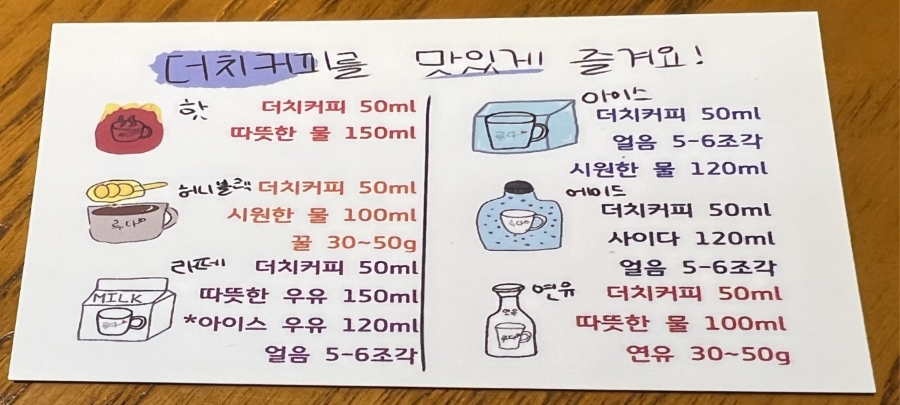 더치커피를 맛있게 즐겨요!
핫
더치커피 50ml
따뜻한 물 150ml
허니블랙
더치커피 50ml
시원한 물 100ml
꿀 30~50g
라떼
더치커피 50ml
따뜻한 우유 150ml
*아이스 우유 120ml
얼음 5-6조각
MILK
아이스
더치커피 50ml
얼음 5-6조각
시원한 물 120ml
에이드
더치커피 50ml
사이다 120ml
얼음 5-6조각
연유
더치커피 50ml
따뜻한 물 100ml
연유 30~50g
연유